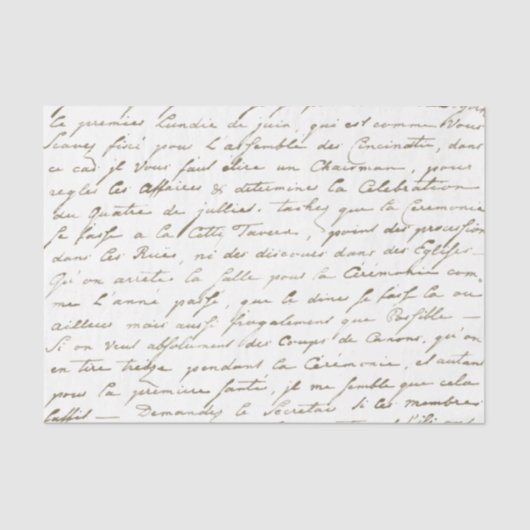 le premier Lundie de juin, qui est comme Vous
scaves fixé pour L'assemblé des Cincinatti, dans
ce cas jl Vous faut elire un Chairman, pour
regler les affaires & determiner la Celebration
du Quatre de jullier. taches que la Ceremonie
se fasse a la Citty Tavern, point des procession
dans les Ruës, ni des discours dans des Eglises
Qu'on arrete la salle pour la Cérémonie com-
me L'anné passé, que le diner se fasse la ou
ailleurs mais aussi frugalement que Possible —
Si on veut absolument des Coups de Canons, qu'on
en tire treize pendant la Cérémonie, et autant
pour la premiere santé, jl me semble que cela
suffit — Demandes le Secretair si les membres